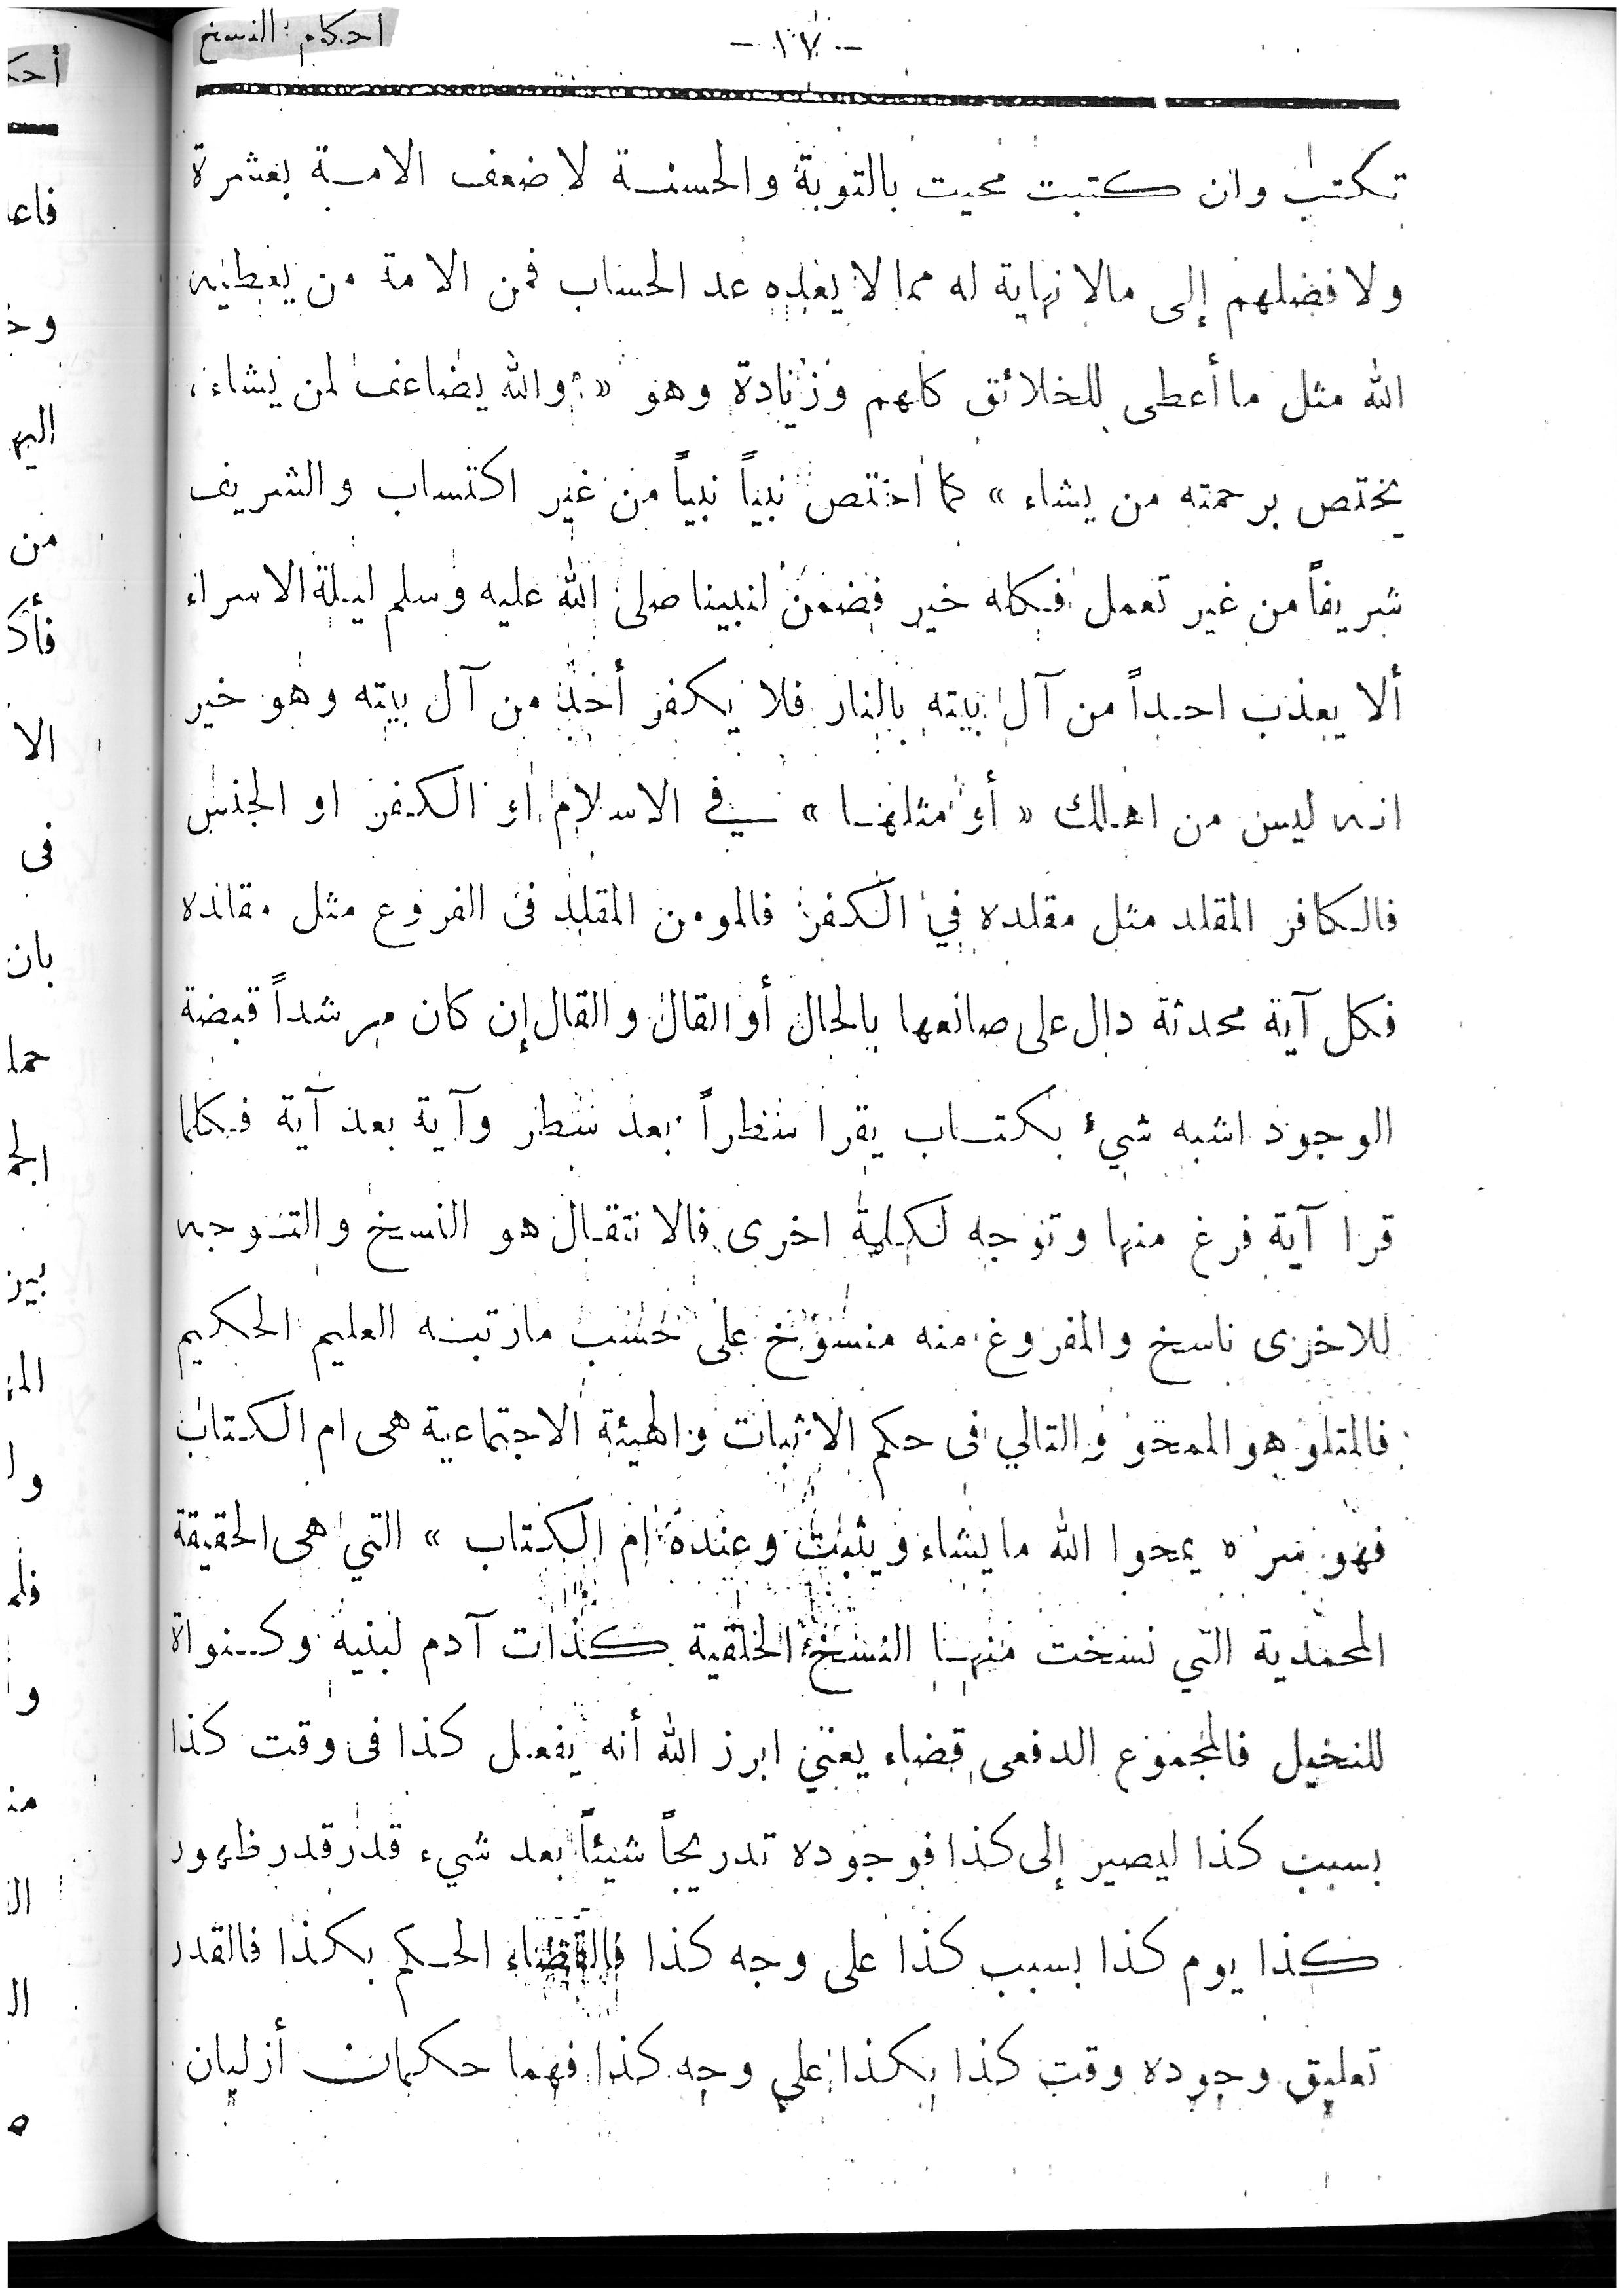 احكام النسخ
- ١٧ -
تكتب وان كتبت محيت بالتوبة والحسنة لا ضعف الامة بعشرة
ولا فضلهم إلى مالا نهاية له مما لا يعده عد الحساب فمن الامة من يعطيه
الله مثل ما أعطى للخلائق كلهم وزيادة وهو « والله يضاعف لمن يشاء،
يختص برحمته من يشاء » كما اختص نبياً نبياً من غير اكتساب والشريف
شريفاً من غير تعمل فكله خير فضمن لنبينا صلى الله عليه وسلم ليلة الاسراء
ألا يعذب احداً من آل بيته بالنار فلا يكفر أحد من آل بيته وهو خير
انه ليس من اهلك « أو مثلها » في الاسلام او الكفر او الجنس
فالكافر المقلد مثل مقلده في الكفر فالمومن المقلد فى الفروع مثل مقلده
فكل آية محدثة دال على صانعها بالحال أو القال والقال إن كان مرشداً قبضة
الوجود اشبه شيء بكتاب يقرا شطراً بعد شطر وآية بعد آية فكلما
قرا آية فرغ منها وتوجه لكلمة اخرى فالانتقال هو النسخ والتوجه
للاخرى ناسخ والمفروغ منه منسوخ على حسب ما رتبه العليم الحكيم
فالمتلو هو الممحو والتالي فى حكم الاثبات والهيئة الاجتماعية هى ام الكتاب
فهو سر « يمحوا الله ما يشاء ويثبت وعنده ام الكتاب » التي هى الحقيقة
المحمدية التي نسخت منها النسخ الخلقية كذات آدم لبنيه وكنواة
للنخيل فالمجموع الدفعى قضاء يعني ابرز الله أنه يفعل كذا فى وقت كذا
بسبب كذا ليصير إلى كذا فوجوده تدريجاً شيئاً بعد شيء قدر قدر ظهور
كذا يوم كذا بسبب كذا على وجه كذا فالقضاء الحكم بكذا فالقدر
تعليق وجوده وقت كذا بكذا على وجه كذا فهما حكمان أزليان